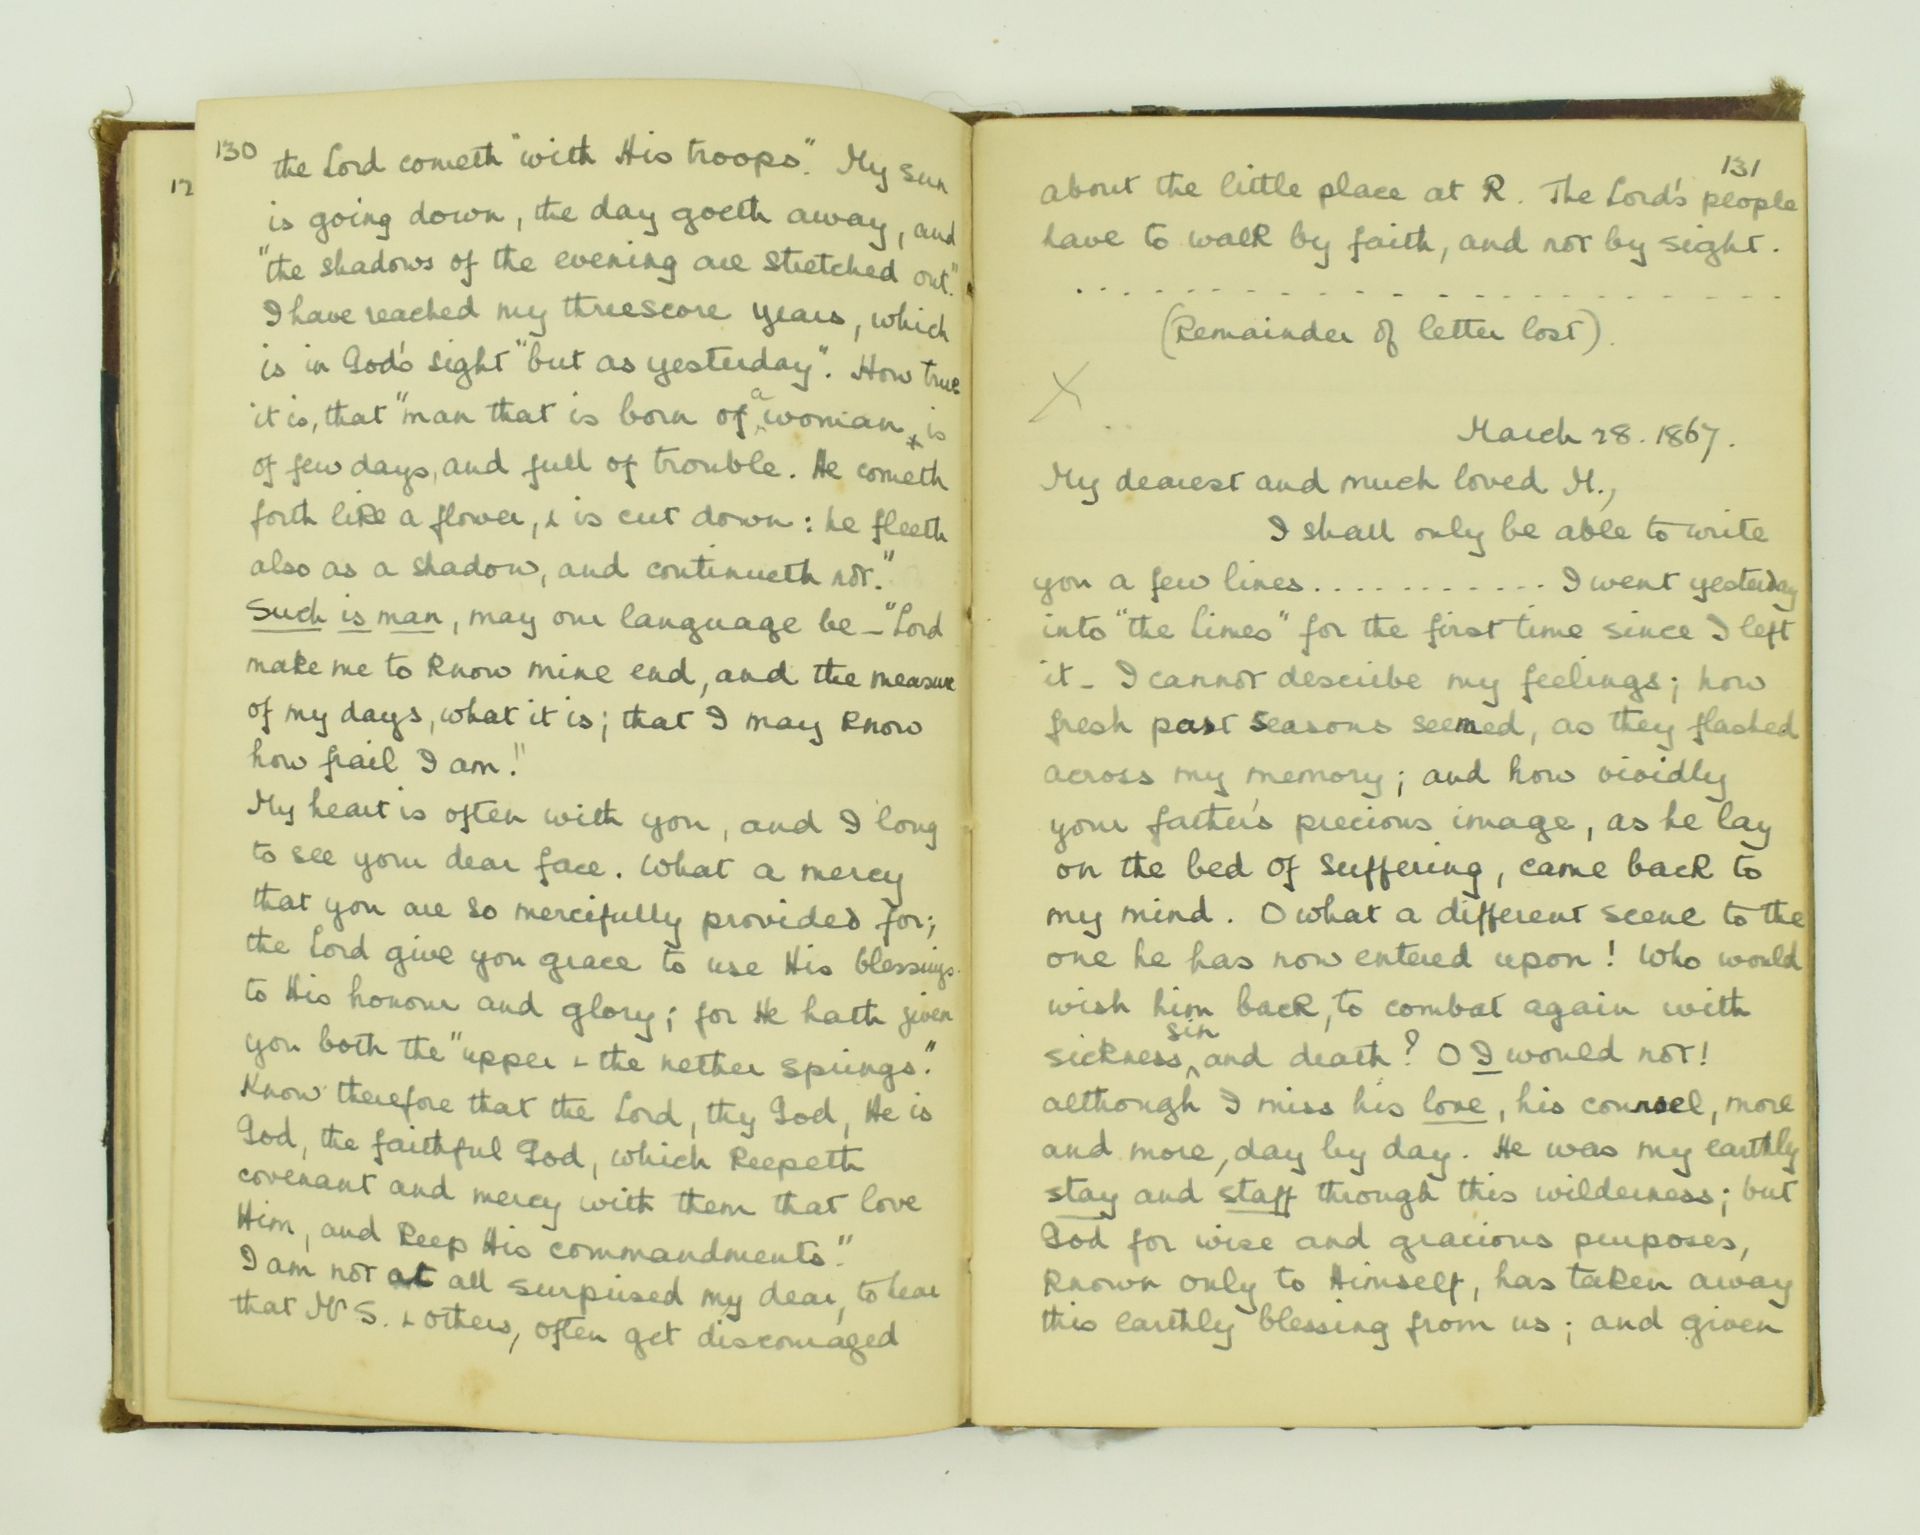 130
12
the Lord cometh "with His troops". My sun
is going down, the day goeth away, and
"the shadows of the evening are stretched out".
I have reached my threescore years, which
is in God's sight "but as yesterday". How true
it is, that "man that is born of a woman, is
of few days, and full of trouble. He cometh
forth like a flower, & is cut down: he fleeth
also as a shadow, and continueth not."
Such is man, may our language be - "Lord
make me to know mine end, and the measure
of my days, what it is; that I may know
how frail I am!"
My heart is often with you, and I long
to see your dear face. What a mercy
that you are so mercifully provided for;
the Lord give you grace to use His blessings
to His honour and glory; for He hath given
you both the "upper & the nether springs."
Know therefore that the Lord, thy God, He is
God, the faithful God, which keepeth
covenant and mercy with them that love
Him, and keep His commandments."
I am not at all surprised my dear, to hear
that Mr S. & others, often get discouraged
131
about the little place at R. The Lord's people
have to walk by faith, and not by sight.
. . . . . . . . . . . . . . . . . . . . . . . .
(Remainder of letter lost).
X
March 28. 1867.
My dearest and much loved M.,
I shall only be able to write
you a few lines . . . . . . . . . . . I went yesterday
into "the Limes" for the first time since I left
it - I cannot describe my feelings; how
fresh past seasons seemed, as they flashed
across my memory; and how vividly
your father's precious image, as he lay
on the bed of suffering, came back to
my mind. O what a different scene to the
one he has now entered upon! Who would
wish him back, to combat again with
sickness, sin and death? O I would not!
although I miss his love, his counsel, more
and more, day by day. He was my earthly
stay and staff through this wilderness; but
God for wise and gracious purposes,
known only to Himself, has taken away
this earthly blessing from us; and given